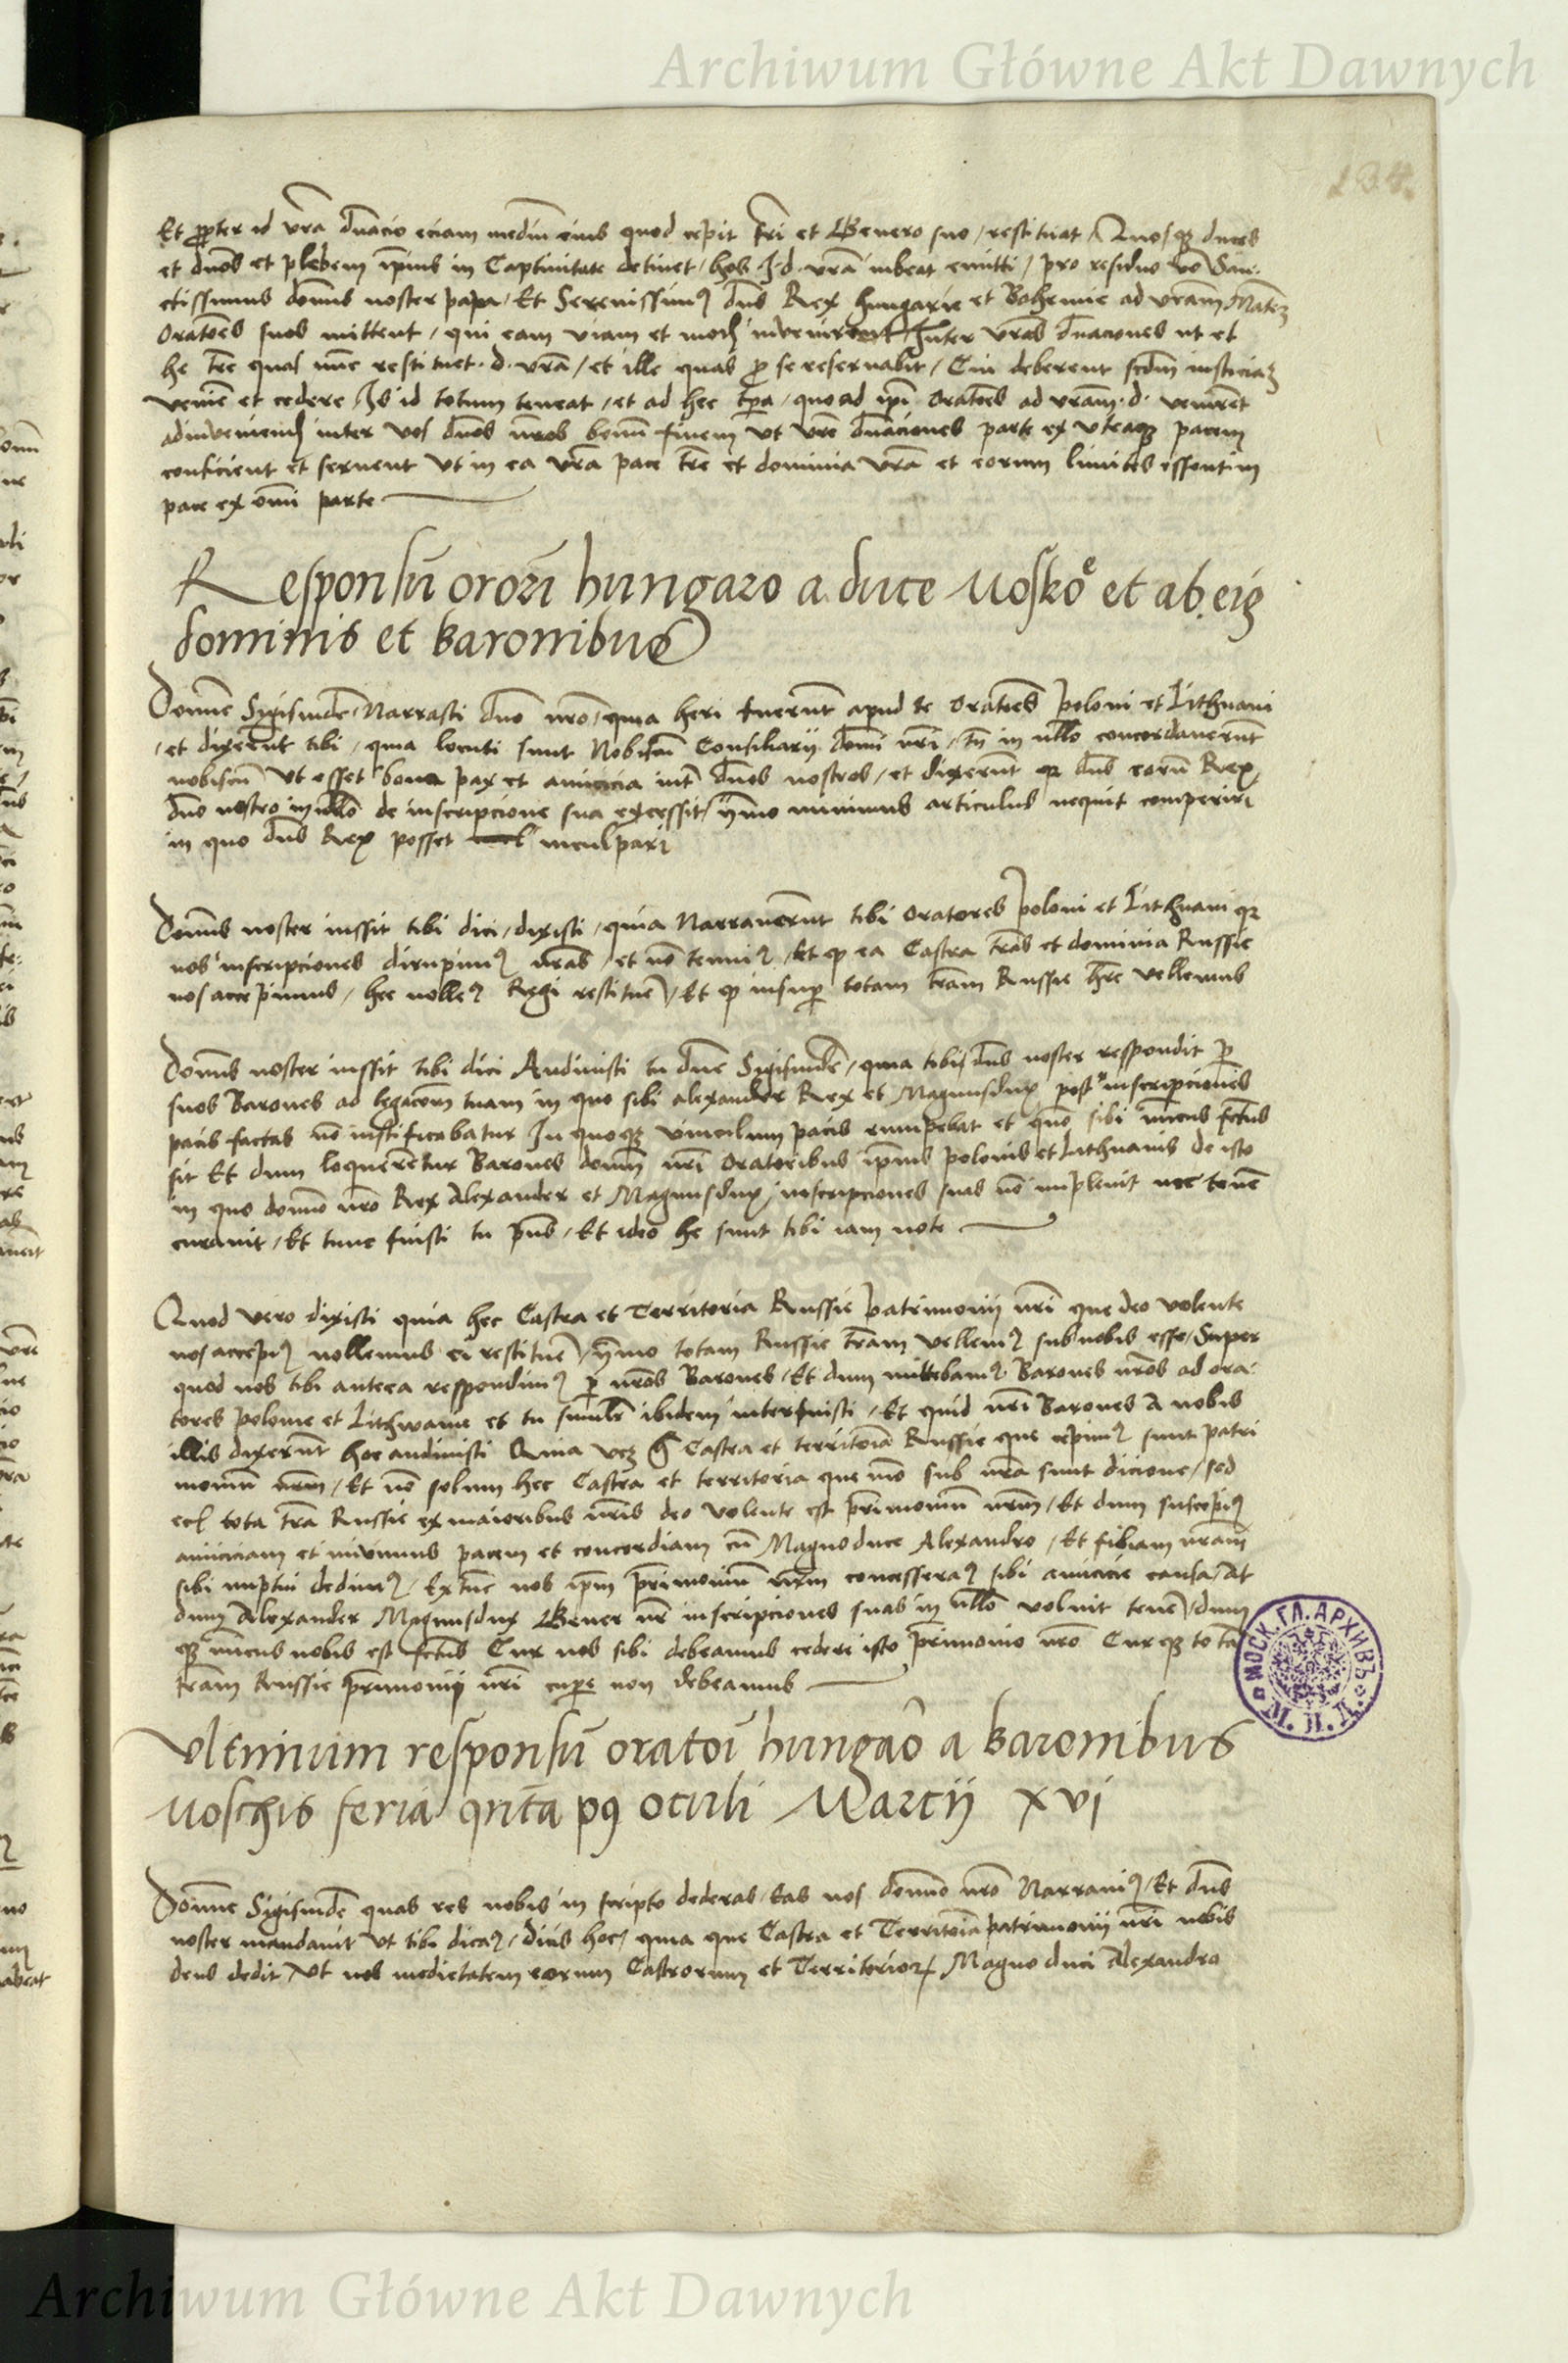 Archiwum Główne Akt Dawnych
134.
Et propter id vra dnacio eciam mediu eius quod cepit fri et Genero suo / restituat / Quosqz duces
et dnos et plebem ipius in Captivitate detinet / hos .J.d. vra iubeat emitti / pro residuo vo San-
ctissimus domus noster papa / Et Serenissimus dns Rex hungarie et Bohemie ad vram Matem
Oratoes suos mittent / qui eam viam et modu invenirent Inter vras dnaciones ut et
he tre quas nunc restituet .d. vra / et ille quas pro se reservabit / Cui deberent scdm iusticiaz
venire et cedere / Js id totum teneat / et ad hec tpra / quoad ipi Oratoes ad vram .d. venirent
adinveniend inter vos dnos nros bonu finem vt vre dnaciones parte ex vtraqz pacem
conficient et servent vt in ea vra pace tre et dominia vra et eorum limites essent in
pace ex omi parte
Responsu orori hungaro a duce Moskoe et ab eiz
dominis et baronibus
Domne Sigismude / Narrasti dno nro / quia heri fuerunt apud te Oratoes poloni et Lithuani
/ et dixerunt tibi / quia locuti sunt Nobiscu Consiliarij domi nri / tn in ullo concordaverunt
nobiscu vt esset bona pax et amicicia int dnos nostros / et dixerunt qz dns eoru Rex
dno nostro in nullo de inscripcione sua excessit / ymo minimus articulus nequit comperiri
in quo dns Rex posset inculpari
Domus noster iussit tibi dici / dixisti / quia Narraverunt tibi Oratores poloni et Lithuani qz
nos inscripciones dirupimus nras / et no tenuimus / Et qz ea Castra tras et dominia Russie
nos accepimus / hec nollemus Regi restituere / Et qz insuper totam tram Russie hre vellemus
Domus noster iussit tibi dici Audivisti tu dne Sigismude / quia tibi dns noster respondit per
suos Barones ad legacoem tuam in quo sibi alexander Rex et Magnusdux post inscripciones
pacis factas no iustificabatur In quoqz vinculum pacis rumpebat et quo sibi inimicus fctus
sit Et dum loquerentur Barones domi nri Oratoribus ipius polonis et Lithuanis de isto
in quo domno nro Rex Alexander et Magnusdux / inscripciones suas no implevit nec tenere
curavit / Et tunc fuisti tu pns / Et ideo he sunt tibi iam note
Quod vero dixisti quia hec Castra et Territoria Russie patrimonij nri que deo volente
nos accepimus nollemus ei restituere / ymo totam Russie tram vellemus sub nobis esse / Super
quod nos tibi antea respondimus per nros Barones / Et dum mittebamus Barones nros ad ora-
tores polonie et Lithwanie et tu similr ibidem interfuisti / Et quid nri Barones A nobis
illis dixerunt hoc audivisti Quia vcz Castra et territoia Russie que cepimus sunt patri
moniu nrm / Et no solum hec Castra et territoria que mo sub nra sunt dicione / sed
ecl tota tra Russie ex maioribus nris deo volente est primoniu nrm / Et dum suscepimus
amiciciam et inivimus pacem et concordiam cu Magnoduce Alexandro / Et filiam nram
sibi nuptui dedimus / Extunc nos ipm primoniu nrm concesseramus sibi amicicie causa / At
dum Alexander Magnusdux Gener nr inscripciones suas in ullo voluit tenere / dum
qz inimicus nobis est fctus Cur nos sibi debeamus cedere isto primonio nro Curqz totam
tram Russie primonij nri cupere non debeamus
Ultimum responsu oratoi hungaro a baronibus
Moschis feria qnta p9 oculi Marcij xvj
Domne Sigismude quas res nobis in scripto dederas / Eas nos domno nro Narravimus / Et dns
noster mandavit vt tibi dicamus / Dicis hoc / quia que Castra et Territoia patrimonij nri nobis
deus dedit / vt nos medietatem eorum Castrorum et Territorior Magno duci Alexandro
МОСК. ГЛ. АРХИВЪ
М. И. Д.
Archiwum Główne Akt Dawnych